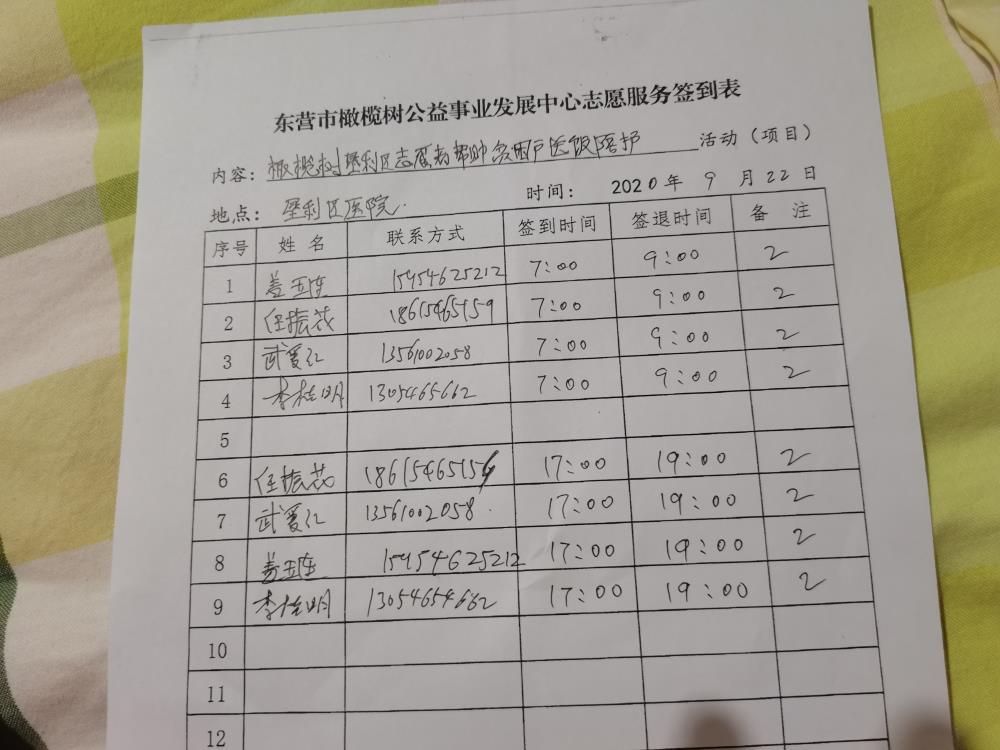 东营市橄榄树公益事业发展中心志愿服务签到表
内容：橄榄树垦利区志愿者帮助贫困户医院陪护 活动（项目）
地点：垦利区医院. 时间： 2020年 9 月 22 日
序号 姓名 联系方式 签到时间 签退时间 备 注
1 盖玉连 15954625212 7:00 9:00 2
2 任振花 18615465159 7:00 9:00 2
3 武爱江 13561002058 7:00 9:00 2
4 李桂明 1305465662 7:00 9:00 2
5
6 任振花 17:00 19:00 2
7 武爱江 13561002058. 17:00 19:00 2
8 盖玉连 15954625212 17:00 19:00 2
9 李桂明 13054654662 17:00 19:00 2
10
11
12